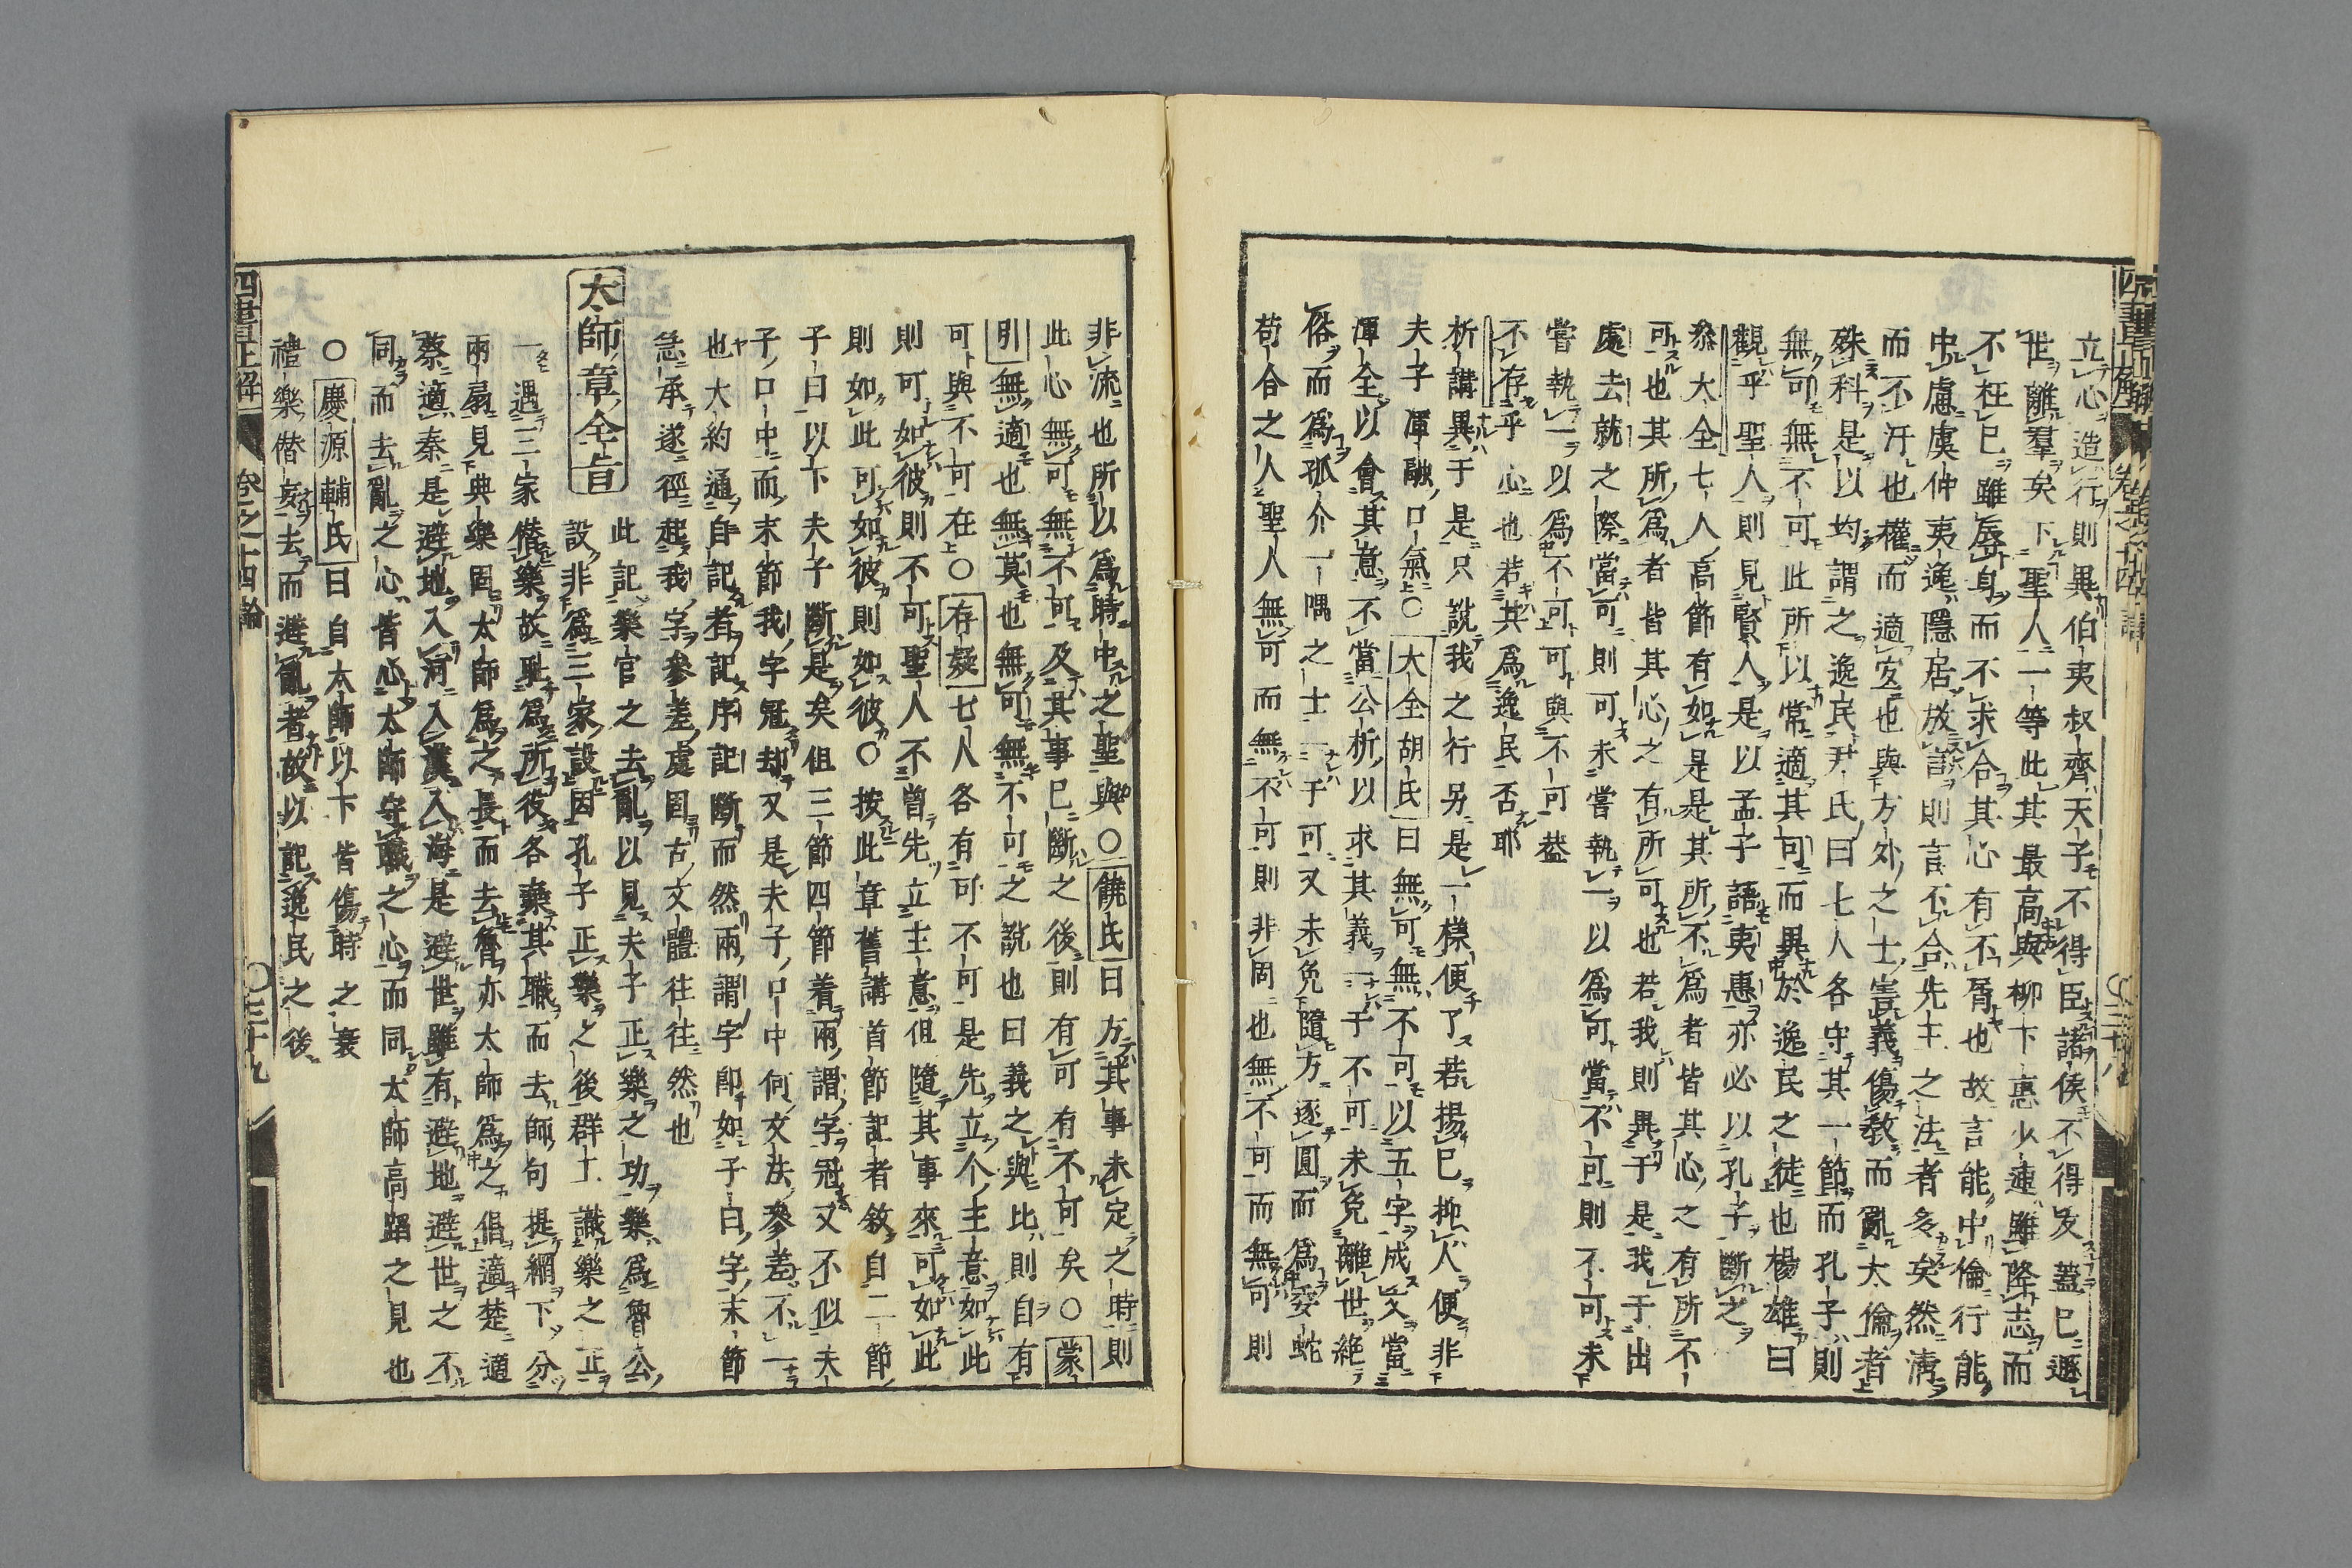 立心造行則異伯夷叔齊天子不得臣諸侯不得友蓋已遯
世離羣矣下聖人一等此其最高與柳下惠少連雖降志而
不枉己雖辱身而不求合其心有不屑也故言能中倫行能
中慮虞仲夷逸隱居放言則言不合先王之法者多矣然淸
而不汙也權而適宜也與方外之士害義傷敎而亂大倫者
殊科是以均謂之逸民尹氏曰七人各守其一節而孔子則
無可無不可此所以常適其可而異於逸民之徒也楊雄曰
觀乎聖人則見賢人是以孟子語夷惠亦必以孔子斷之
叅大全七人高節有如是是其所不爲者皆其心之有所不
可也其所爲者皆其心之有所可也若我則異于是我于出
處去就之際當可則可未嘗執一以爲可當不可則不可未
嘗執一以爲不可可與不可蓋
不存乎心也若其爲逸民否耶
析講異于是只說我之行另是一樣便了若揚己抑人便非
夫子渾融口氣○大全胡氏曰無可無不可以五字成文當
渾全以會其意不當公析以求其義一于不可未免離世絶
俗而爲孤介一隅之士一于可又未免隨方逐圓而爲委蛇
苟合之人聖人無可而無不可則非固也無不可而無可則
非流也所以爲時中之聖與○饒氏曰方其事未定之時則
此心無可無不可及其事已斷之後則有可有不可矣○蒙
引無適也無莫也無可無不可之說也曰義之與比則自有
可與不可在○存疑七人各有可不可是先立个主意如此
則可如彼則不可聖人不曾先立主意但隨其事來可如此
則如此可如彼則如彼○按此章舊講首節記者敘自二節
子曰以下夫子斷是矣但三節四節着兩謂字冠又不似夫
子口中而末節我字冠却又是夫子口中何文法參差不一
也大約通自記者記序記斷而然兩謂字卽如子曰字末節
急承遂徑起我字參差處固古文體往往然也
太師章全旨
此記樂官之去亂以見夫子正樂之功樂爲魯公
設非爲三家設因孔子正樂之後群工識樂之正
一遇三家僭樂故恥爲所役各棄其職而去師句提綱下分
兩扇見典樂固太師爲之長而去魯亦太師爲之倡適楚適
蔡適秦是避地入河入漢入海是避世雖有避地避世之不
同而去亂之心皆心太師守職之心而同太師高蹈之見也
○慶源輔氏曰自太師以下皆傷時之衰
禮樂僭妄去而避亂者故以記逸民之後
四書正解
卷之十四論
○三十九